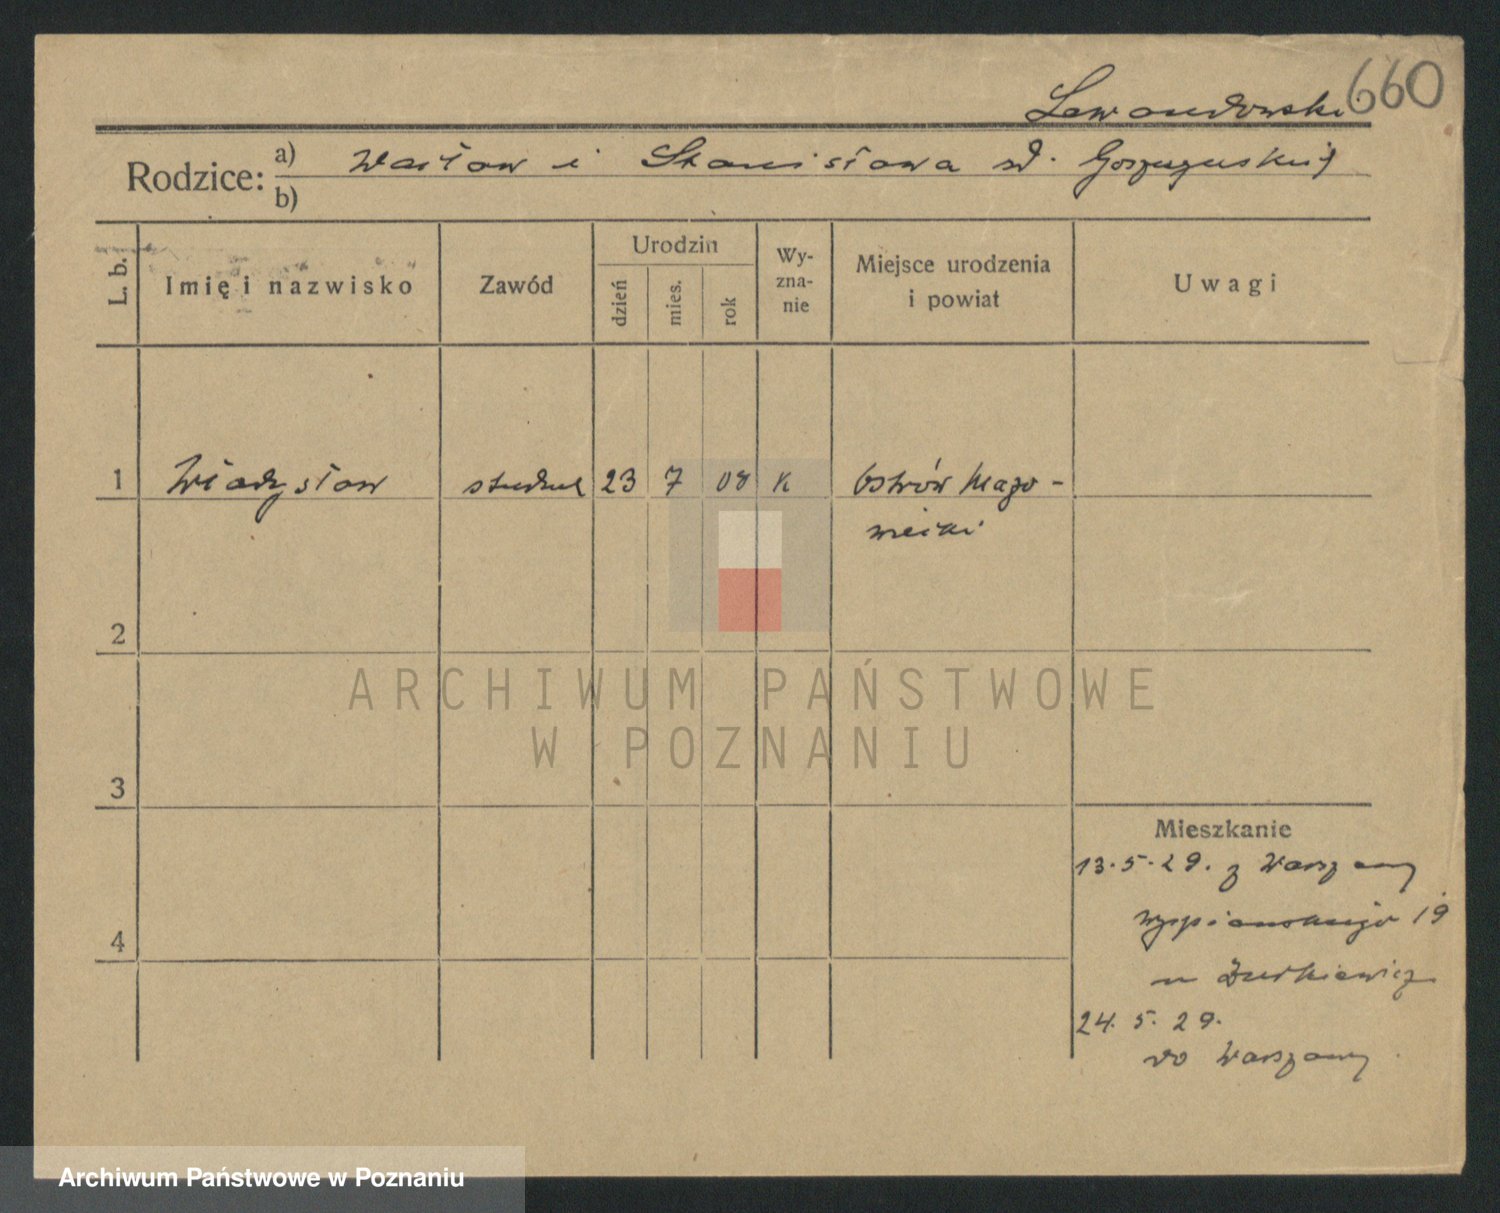 660
Lewandowski
Rodzice: a) Wacław i Stanisława zd.
b)
L. b.
Imię i nazwisko
Zawód
Urodzin
dzień
mies.
rok
Wy-
zna-
nie
Miejsce urodzenia
i powiat
Uwagi
1 Władysław student 23 7 08 k Ostrów Mazo-
wiecki
2
ARCHIWUM PAŃSTWOWE
W POZNANIU
3
Mieszkanie
13.5.29. z Warszawy
4
Wyspiańskiego 19
u Żurkiewicz
24.5.29.
do Warszawy
Archiwum Państwowe w Poznaniu